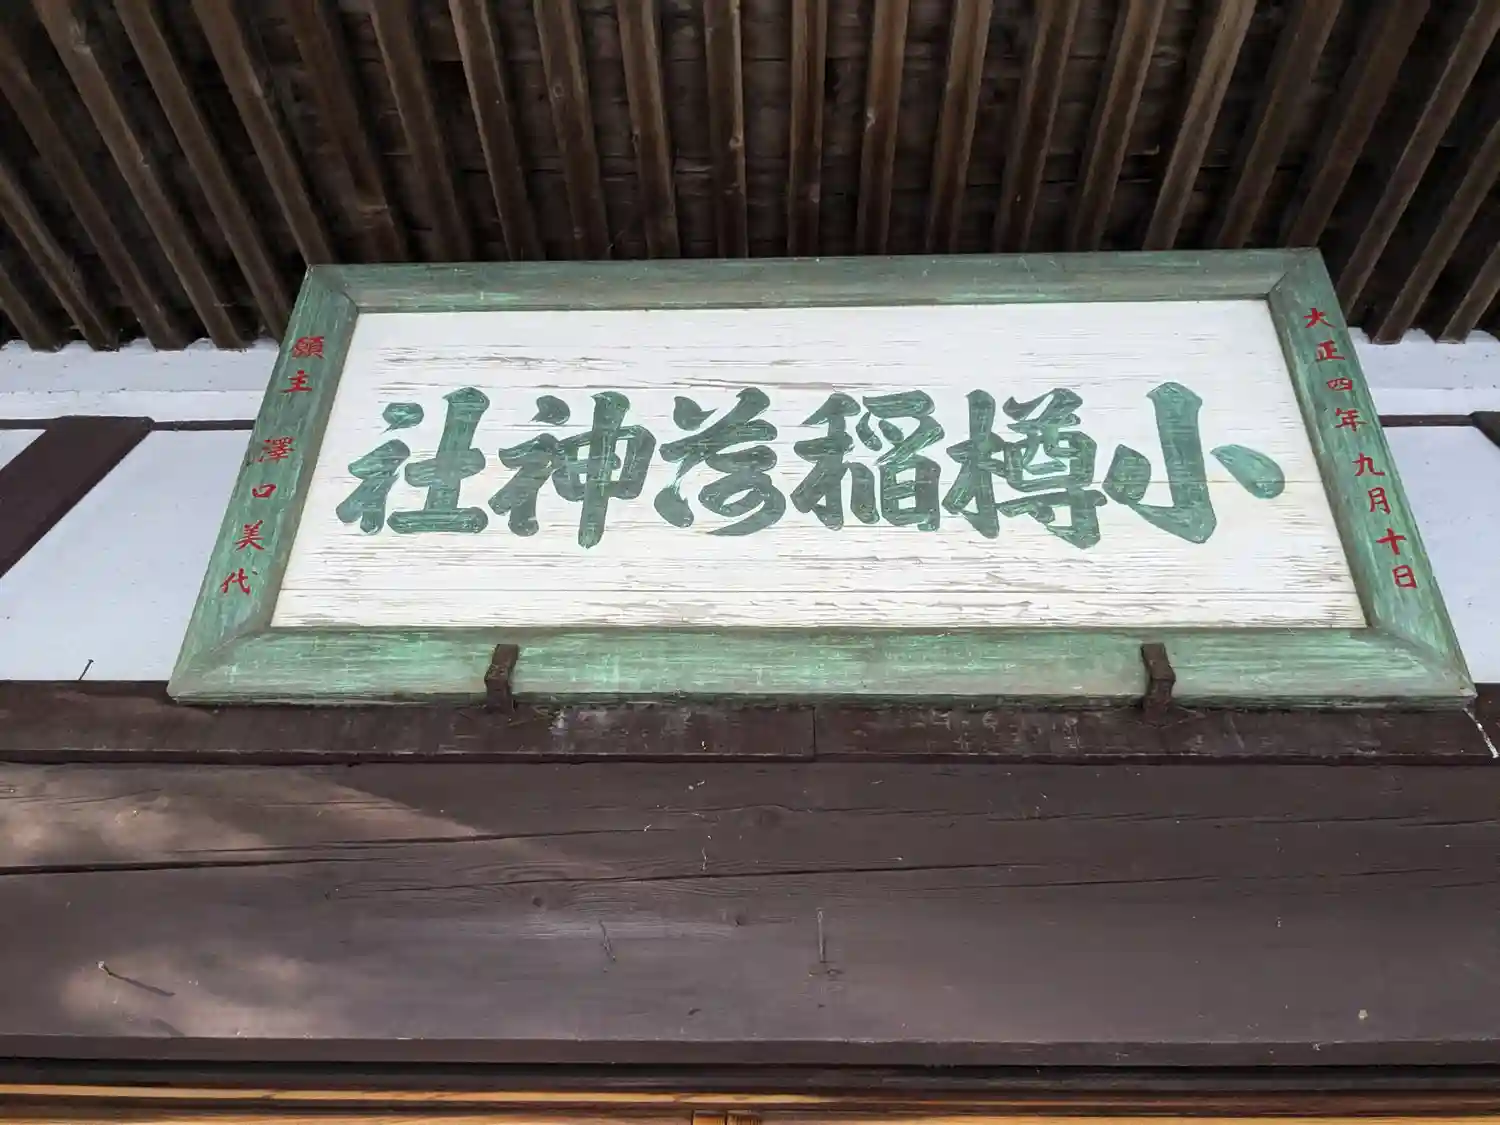 大正四年九月十日
小樽稲荷神社
願主 澤口美代